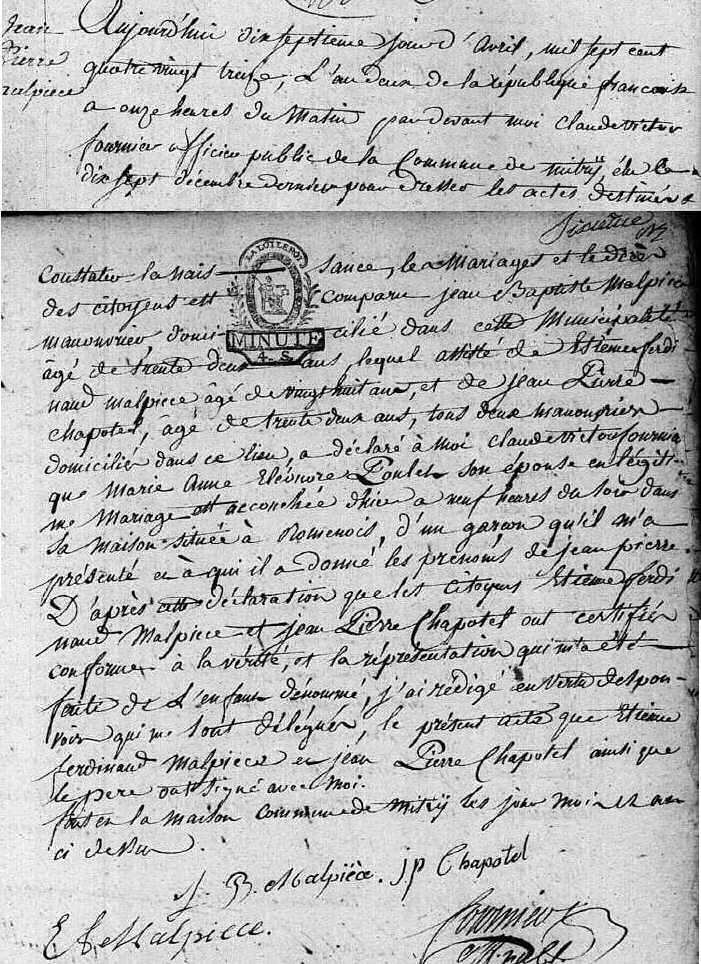 Jean
Pierre
malpiece
Aujourd'hui dix septieme jour d'avril, mil sept cent
quatre vingt treize, L'an deux de la république francoise
a onze heures du matin pardevant moi claude victor
fournier officier public de la Commune de mitry, élu le
dix sept décembre dernier pour dresser les actes destinés a
constater la nais sance, les Mariages et le décès
des citoyens est comparu jean Baptiste Malpiece
manouvrier domi cilié dans cette Municipalité
âgé de trente deux ans, lequel assisté de Etienne ferdi
nand malpiece âgé de vingt huit ans, et de jean Pierre
chapotel, âgé de trente deux ans, tous deux manouvriers
domicilié dans ce lieu, a déclaré à moi claude victor fournier
que Marie Anne Eléonore Poulet son épouse en légiti
me Mariage est accouchée d'hier a neuf heures du soir dans
sa maison située à Romenois, d'un garçon qu'il m'a
présenté et à qui il a donné les prénoms de jean pierre.
D'après cette déclaration que les citoyens Etienne ferdi
nand Malpiece et jean Pierre Chapotel ont certifiée
conforme à la vérité, et la représentation qui m'a été
faite de L'enfant dénommé, j'ai rédigé en vertu des pou-
voirs qui me sont délégués, le présent acte que Etienne
ferdinand Malpiece et jean Pierre Chapotel ainsi que
le pere ont signé avec moi.
fait en la maison commune de mitry les jour mois et an
ci dessus.
J. B. Malpièce. J P Chapotel
E f Malpiece.
fournier
LA LOI LE ROI
MINUTE
4. S.